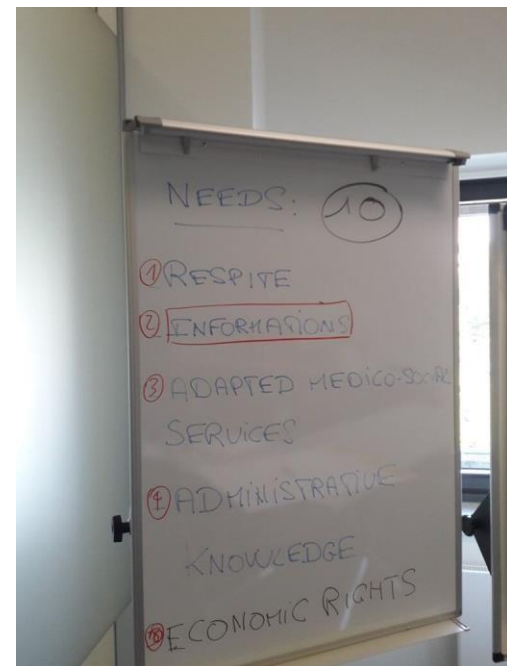 NEEDS: 10
1 RESPITE
2 INFORMATIONS
3 ADAPTED MEDICO-SOCIAL
SERVICES
4 ADMINISTRATIVE
KNOWLEDGE
ECONOMIC RIGHTS